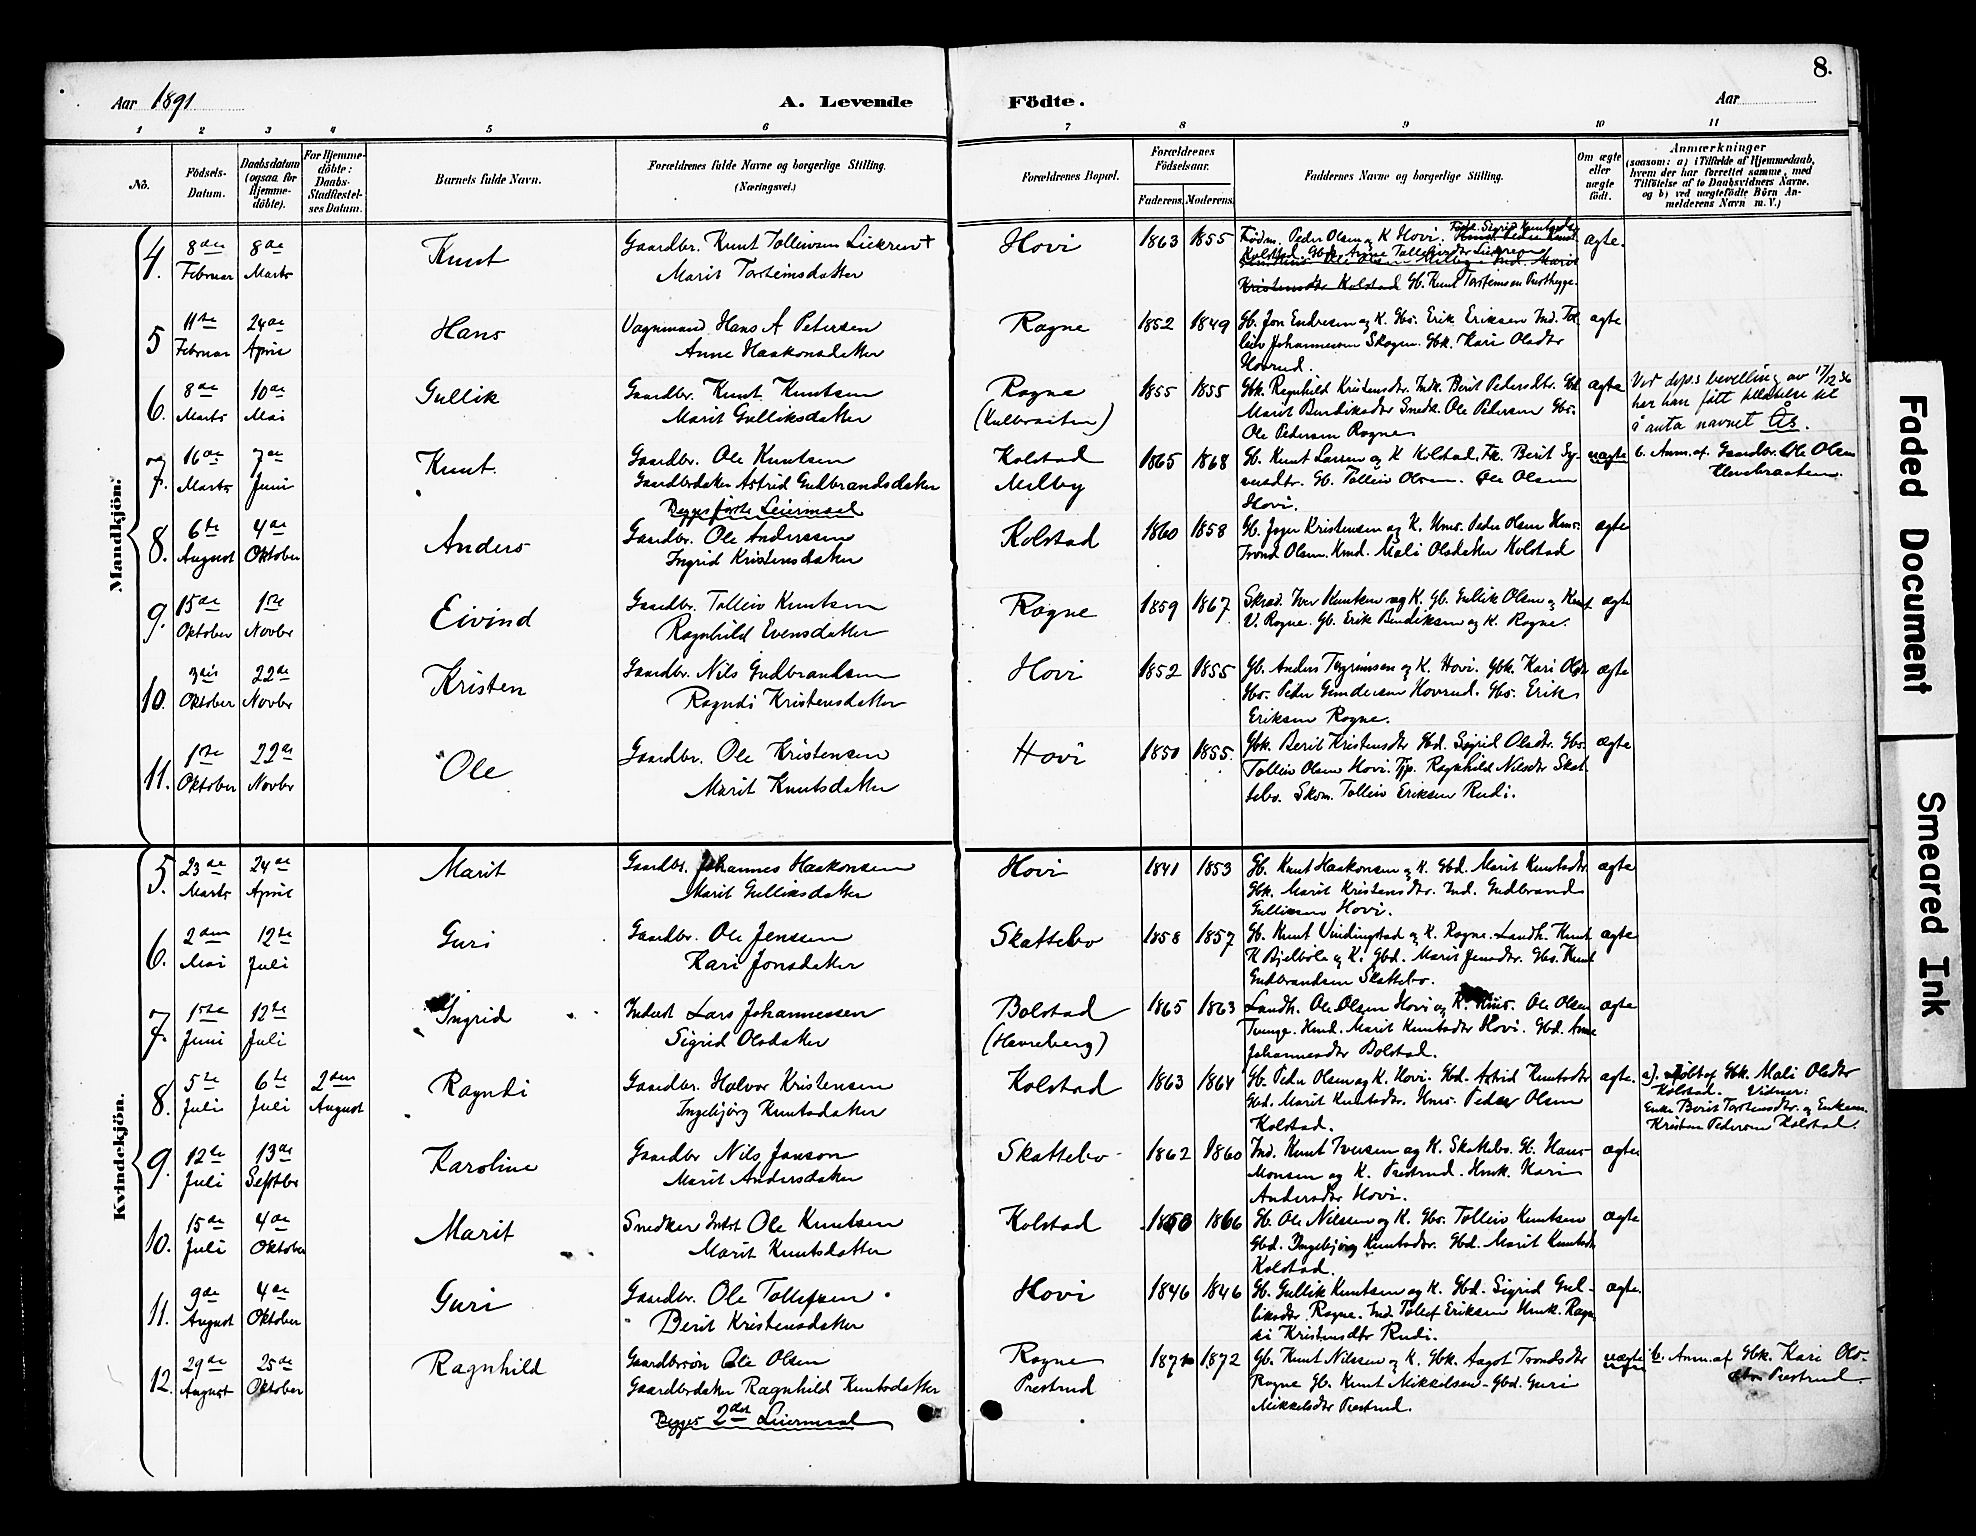 8.
Aar 1891
A. Levende
Födte.
Aar
1 2 3 4 5 6 7 8 9 10 11
No.
Födsels-
Datum.
Daabsdatum
(ogsaa for
Hjemme-
döbte).
For Hjemme-
döbte:
Daabs-
Stadfæstel-
ses Datum.
Barnets fulde Navn.
Forældrenes fulde Navne og borgerlige Stilling.
(Næringsvei.)
Forældrenes Bopæl.
Forældrenes
Födselsaar.
Faderens.
Moderens.
Faddernes Navne og borgerlige Stilling.
Om ægte
eller
uægte
födt.
Anmærkninger
(saasom: a) i Tilfælde af Hjemmedaab,
hvem der har forrettet samme, med
Tilföielse af to Daabsvidners Navne,
og b) ved uægtefödte Börn An-
melderens Navn m. V.)
Mandkjön.
4. 8de Februar 8de Marts Knut
Gaardbr. Knut Tolleivsen
Marit Torsteinsdatter
Hovi 1863 1855
Peder Olsen og K Hovi.
Kolstad.
Kristensdtr Kolstad Gb. Knut Torsteinsen
ægte.
5 11te Februar 24de April Hans
Vognmand Hans A Petersen
Anne Haakonsdatter
Rogne 1852 1849
Gb. Jon Endresen og K. Gbs. Erik Eriksen Ind. Tol-
leiv Johannesen Skogen. Gbk. Kari Olsdtr
Hovrud.
ægte
6. 8de Marts 10de Mai Gullik
Gaardbr. Knut Knutsen
Marit Gulliksdatter
Rogne 1855 1855
Gbk. Ragnhild Kristensdtr. Indk. Berit Pedersdtr. Gbd
Marit Bendiksdtr Snedk. Ole Pedersen Gbs.
Ole Pedersen Rogne
ægte
Ved dep.s bevilling av 17/12 36
har han fått tillatelse til
å anta navnet Ås.
7. 16de Marts 7de Juni Knut.
Gaardbr. Ole Knutsen
Gaardbrdatter Astrid Gudbrandsdatter
Begges første Leiermaal
Kolstad
Melby
1865 1868
Gb. Knut Larsen og K Kolstad. Fk. Berit Sy-
versdtr. Gb. Tolleiv Olsen. Ole Olsen
Hovi.
uægte
b. Anm. af. Gaardbr. Ole Olsen
8. 6te August 4de Oktober Anders
Gaardbr. Ole Anderssen
Ingrid Kristensdatter
Kolstad 1860 1858
Gb. Jøger Kristensen og K. Hms. Peder Olsen Hms.
Trond Olsen. Hmd. Mali Olsdatter Kolstad
ægte
9. 15de Oktober 1ste Novbr Eivind
Gaardbr. Tolleiv Knutsen
Ragnhild Evensdatter
Rogne 1859 1867
Skræd. Iver Knutsen og K. Gb. Gullik Olsen og Knut
V. Rogne. Gb. Erik Bendiksen og K. Rogne.
ægte
10. 3die Oktober 22de Novbr Kristen
Gaardbr. Nils Gudbrandsen
Ragndi Kristensdatter
Hovi 1852 1855
Gb. Anders Torgrimsen og K. Hovi. Gbk. Kari Olsdtr
Gbs. Peder Gundersen Hovrud. Gbs. Erik
Eriksen Rogne.
ægte
11. 1ste Oktober 22de Novbr Ole
Gaardbr. Ole Kristensen
Marit Knutsdatter
Hovi 1850 1855.
Gbk. Berit Kristensdtr Gbd. Sigrid Olsdtr. Gbs.
Tolleiv Olsen Hovi. Tjp. Ragnhild Nilsdtr Skat-
tebo. Skom. Tolleiv Eriksen Rudi.
ægte
Kvindekjön.
5. 23de Marts 24de April Marit
Gaardbr. Johannes Haakonsen
Marit Gulliksdatter
Hovi 1841 1853
Gb. Knut Haakonsen og K. Gbd. Marit Knutsdtr
Gbk. Marit Kristensdtr. Ind. Gudbrand
Gulliksen Hovi.
ægte
6. 2den Mai 12te Juli Guri
Gaardbr. Ole Jenssen
Kari Jonsdatter
Skattebo 1858 1857
Gb. Knut Vindingstad og K. Rogne. Landh. Knut
K Bjelbøle og K. Gbd. Marit Jensdtr. Gbs. Knut
Gudbrandsen Skattebo.
ægte
7. 1ste Juni 12te Juli Ingrid
Inderst Lars Johannessen
Sigrid Olsdatter
Bolstad
(Havreberg)
1865 1863
Landh. Ole Olsen Hovi og K. Hms. Ole Olsen
Tvenge. Hmd. Marit Knutsdtr Hovi. Gbd. Anne
Johannesdtr Bolstad.
ægte
8. 5te Juli 6te Juli 2den August Ragndi
Gaardbr. Halvor Kristensen
Ingebjørg Knutsdatter
Kolstad 1863 1864
Gb. Peder Olsen og K. Hovi. Gbd. Astrid Knutsdtr
Gbd. Marit Knutsdtr. Hms. Peder Olsen
Kolstad.
ægte.
a). Døbt af Gbk. Mali Olsdtr
Kolstad. Vidner:
Enke Berit Torstensdtr. og Enkem.
Kristen Pedersen Kolstad.
9. 12te Juli 13de Septbr Karoline
Gaardbr Nils Jonson
Marit Andersdatter
Skattebo 1862 1860
Ind. Knut Iversen og K. Skattebo. Gb. Hans
Monsen og K. Prestrud. Hmk. Kari
Andersdtr Hovi.
ægte
10. 15de Juli 4de Oktober Marit
Snedker Indst Ole Knutsen
Marit Knutsdatter
Kolstad 1866
Gb. Ole Nilssen og K. Gbs. Tolleiv Knutsen
Gbd. Ingebjørg Knutsdtr. Gbd. Marit Knutsdtr
Kolstad.
ægte
11. 9de August 4de Oktober Guri
Gaardbr. Ole Tollefsen
Berit Kristensdatter
Hovi 1846 1846
Gb. Gullik Knutsen og K. Gbd. Sigrid Gul-
liksdtr Rogne. Ind. Tollef Eriksen Hmk. Ragn-
di Kristensdtr Rudi.
ægte.
12. 29de August 25de Oktober Ragnhild
Gaardbrsøn Ole Olsen
Gaardbrdatter Ragnhild Knutsdatter
Begges 2det Leiermaal
Rogne
Prestrud
1872
Gb. Knut Nilssen og K. Gbk. Aagot Trondsdtr
Rogne Gb. Knut Mikkelsen. Gbd. Guri
Mikkelsdtr Prestrud.
uægte
b. Anm. af Gbk. Kari Ols-
dtr Prestrud.
Faded Document
Smeared Ink